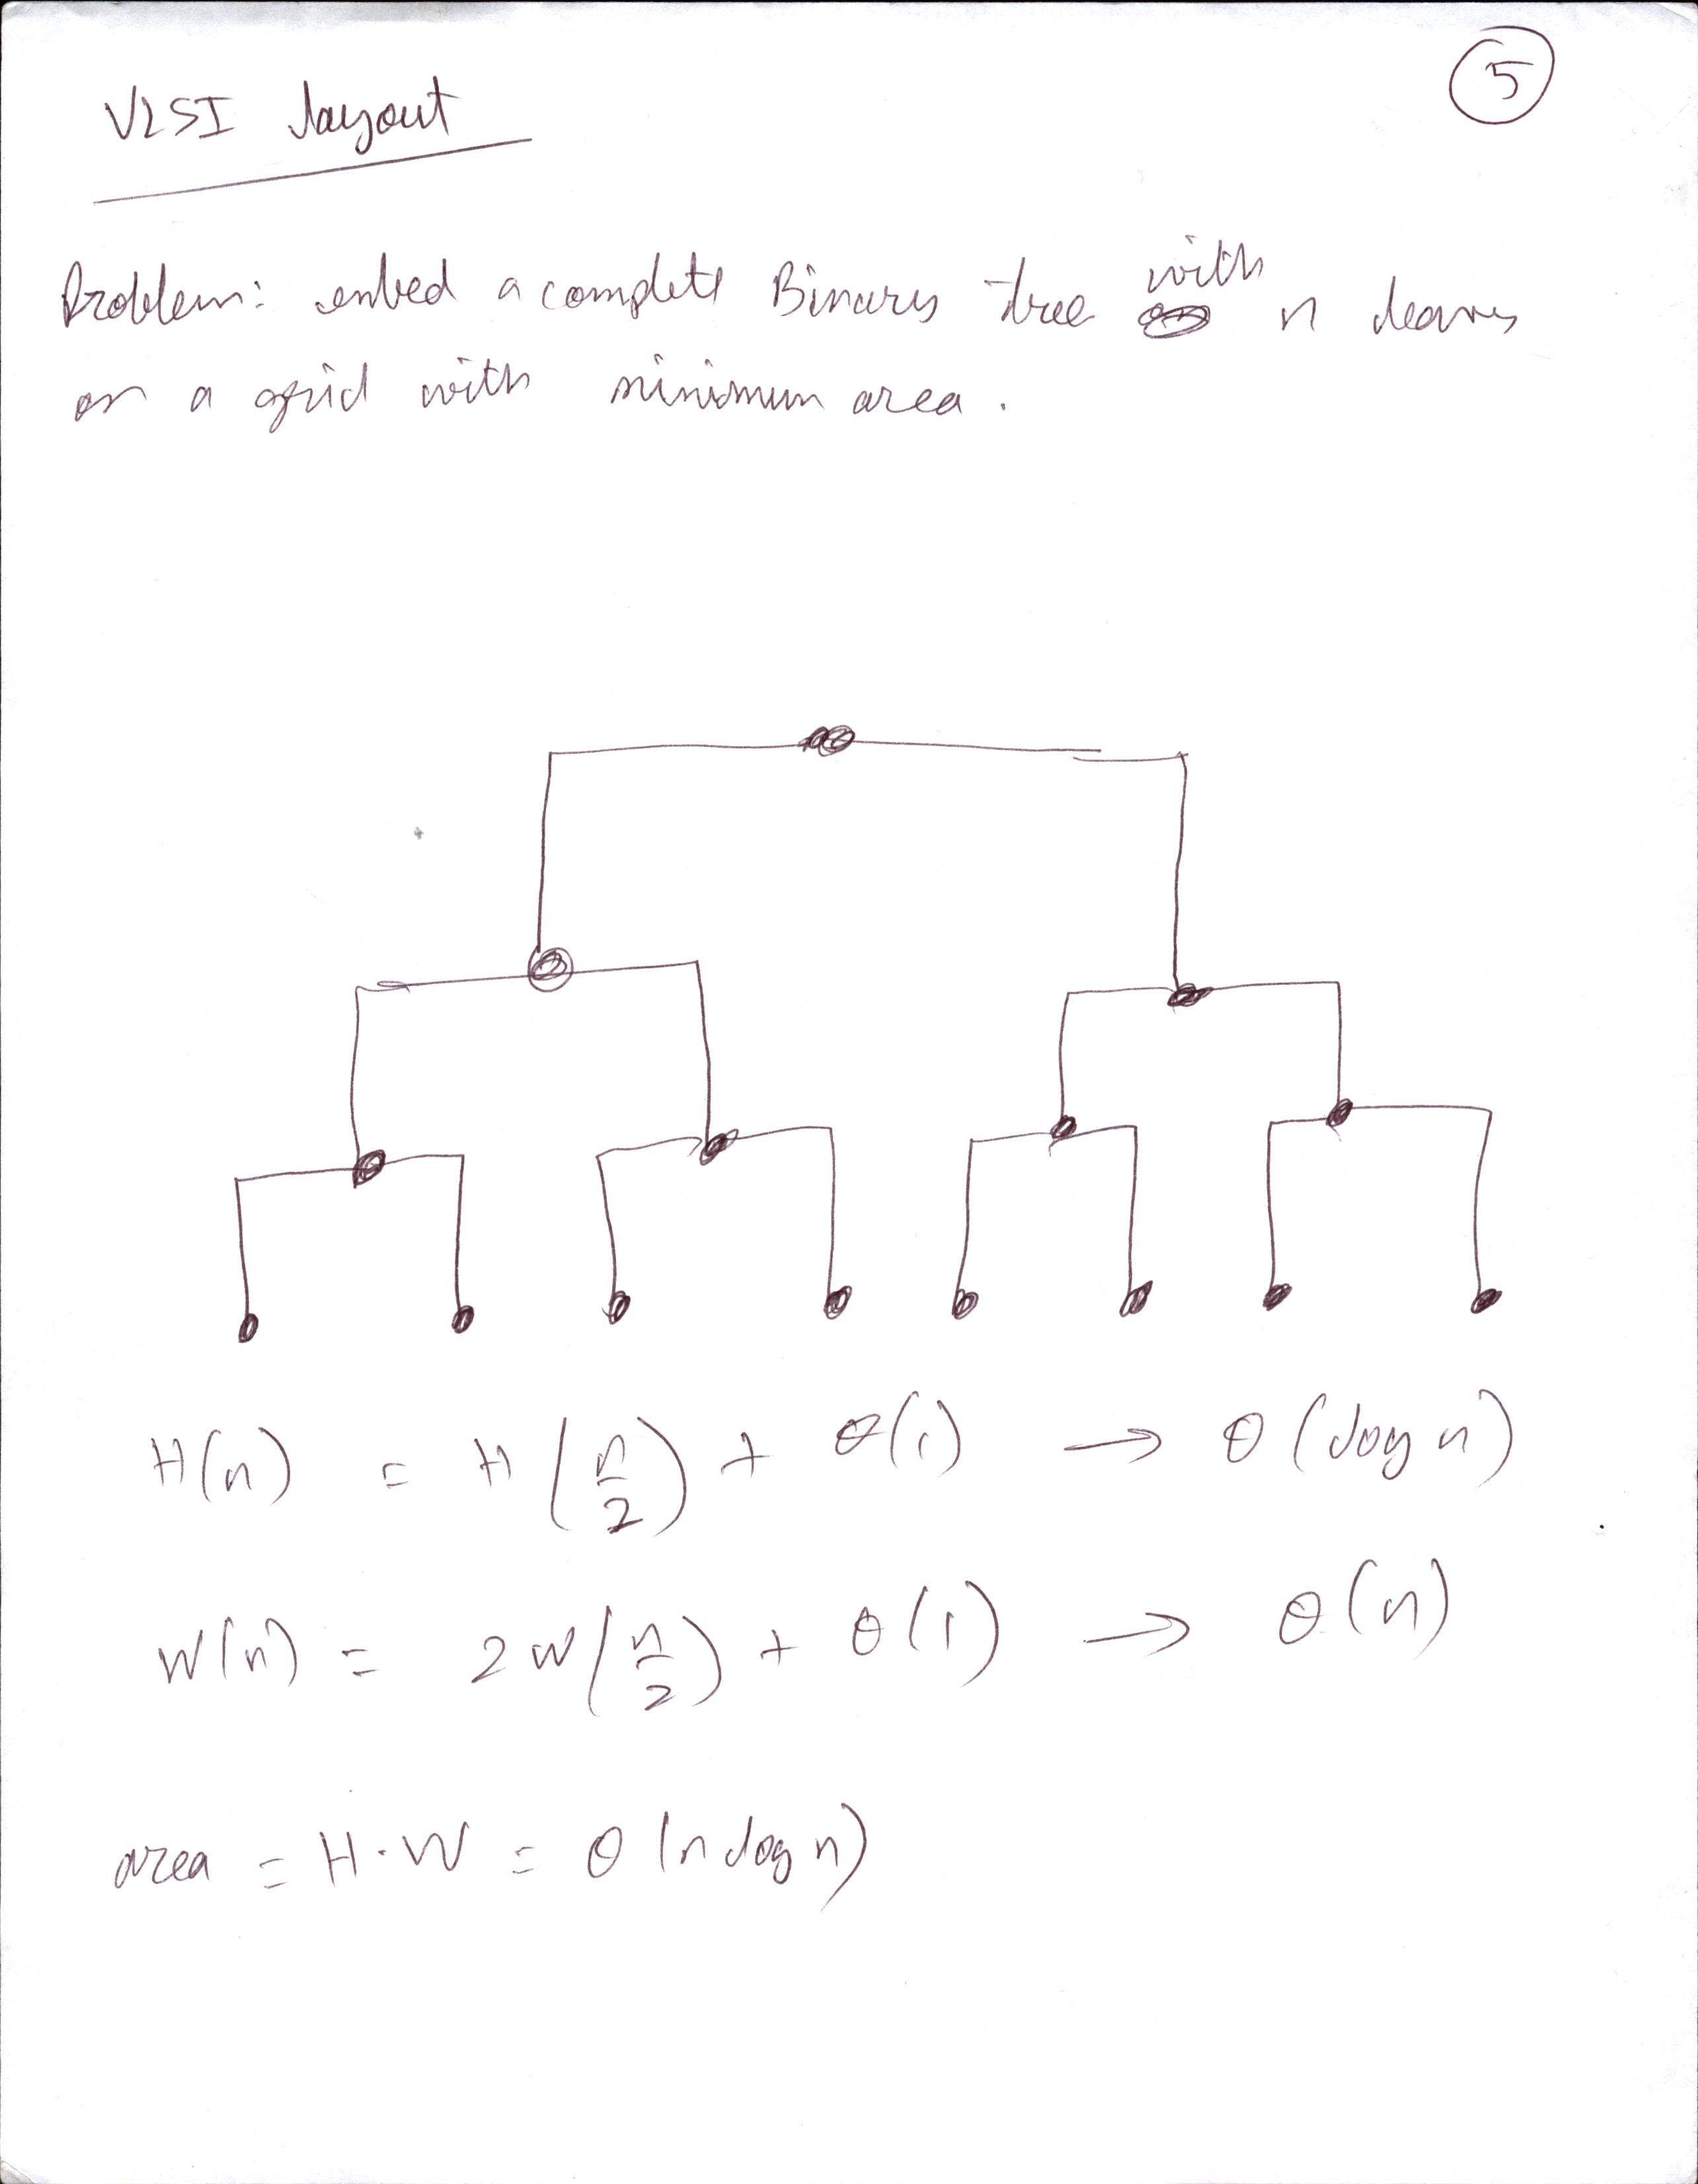 5
VLSI layout
Problem: embed a complete Binary tree with n leaves
on a grid with minimum area.
H(n) = H(n/2) + Θ(1) → Θ(log n)
W(n) = 2W(n/2) + Θ(1) → Θ(n)
area = H·W = Θ(n log n)